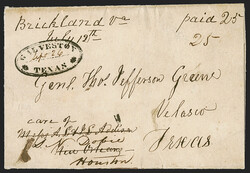 Brickland Va paid 25
July 19th 25
GALVESTON
TEXAS
Genl. Tho. Jefferson Green
Velasco
Texas
care of
New Orleans
Houston